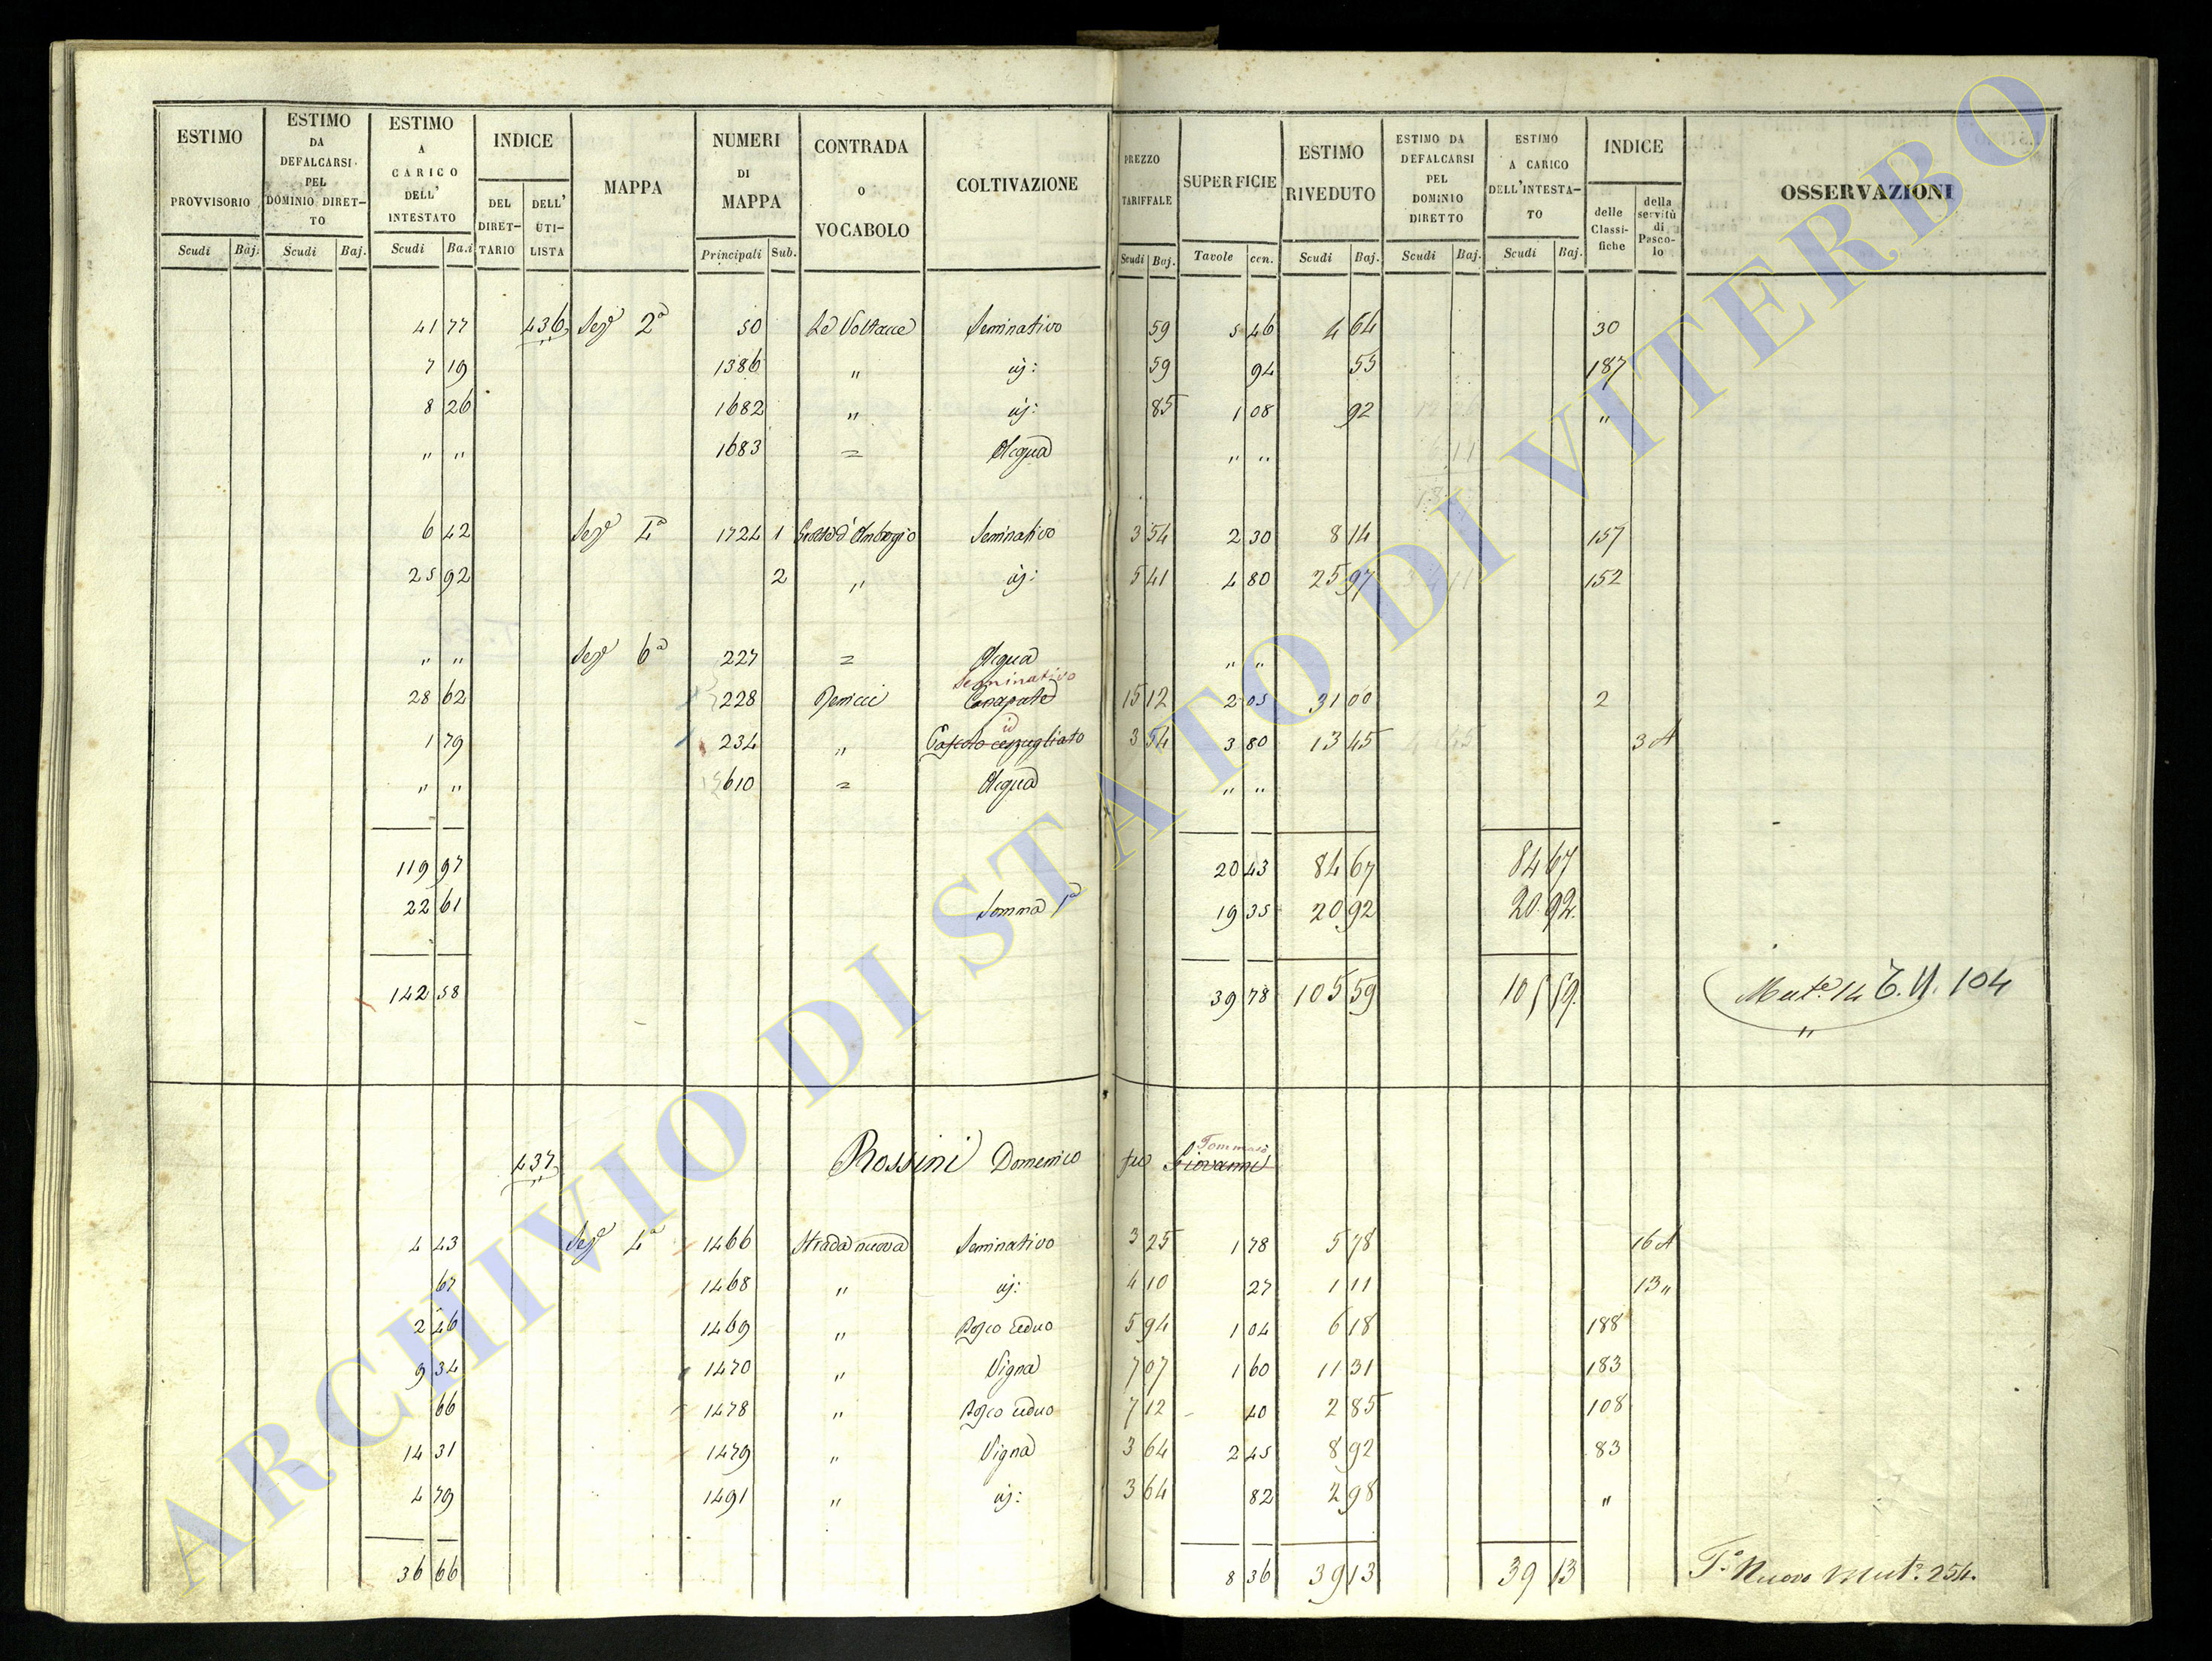 ESTIMO PROVVISORIO Scudi Baj. ESTIMO DA DEFALCARSI PEL DOMINIO DIRETTO Scudi Baj. ESTIMO A CARICO DELL' INTESTATO Scudi Ba.i INDICE DEL DIRETTARIO DELL' UTILISTA MAPPA NUMERI DI MAPPA Principali Sub. CONTRADA o VOCABOLO COLTIVAZIONE PREZZO TARIFFALE Scudi Baj. SUPERFICIE Tavole cen. ESTIMO RIVEDUTO Scudi Baj. ESTIMO DA DEFALCARSI PEL DOMINIO DIRETTO Scudi Baj. ESTIMO A CARICO DELL'INTESTATO Scudi Baj. INDICE delle Classifiche della servitù di Pascolo OSSERVAZIONI
41 77 436 Sezᵉ 2ª 50 Le Voltacce Seminativo 59 5 46 4 64 30
7 19 1386 " id: 59 94 55 187
8 26 1682 " id: 85 1 08 92 "
" " 1683 = Acqua " "
6 42 Sezᵉ 4ª 1724 1 Seminativo 3 54 2 30 8 14 157
25 92 2 " id: 5 41 4 80 25 97 152
" " Sezᵉ 6ª 227 = Acqua " "
Seminativo
28 62 228 Canapule 15 12 2 05 31 00 2
id
1 79 234 " Pascolo cespugliato 3 54 3 80 13 45 3 A
" " 610 = Acqua " "
119 97 20 43 84 67 84 67
22 61 Somma 1ª 19 35 20 92 20 92
142 58 39 78 105 59 105 59 Mutᵉ 14 T. V. 104
"
Tommaso
437 Rossini Domenico fu Giovanni
4 43 Sezᵉ 4ª 1466 Strada nuova Seminativo 3 25 1 78 5 78 16 A
67 1468 " id: 4 10 27 1 11 13 "
2 46 1469 " Bosco ceduo 5 94 1 04 6 18 188
9 34 1470 " Vigna 7 07 1 60 11 31 183
66 1478 " Bosco ceduo 7 12 40 2 85 108
14 31 1479 " Vigna 3 64 2 45 8 92 83
4 79 1491 " id: 3 64 82 2 98 "
36 66 8 36 39 13 39 13 Tº Nuovo Mutª 254.
ARCHIVIO DI STATO DI VITERBO